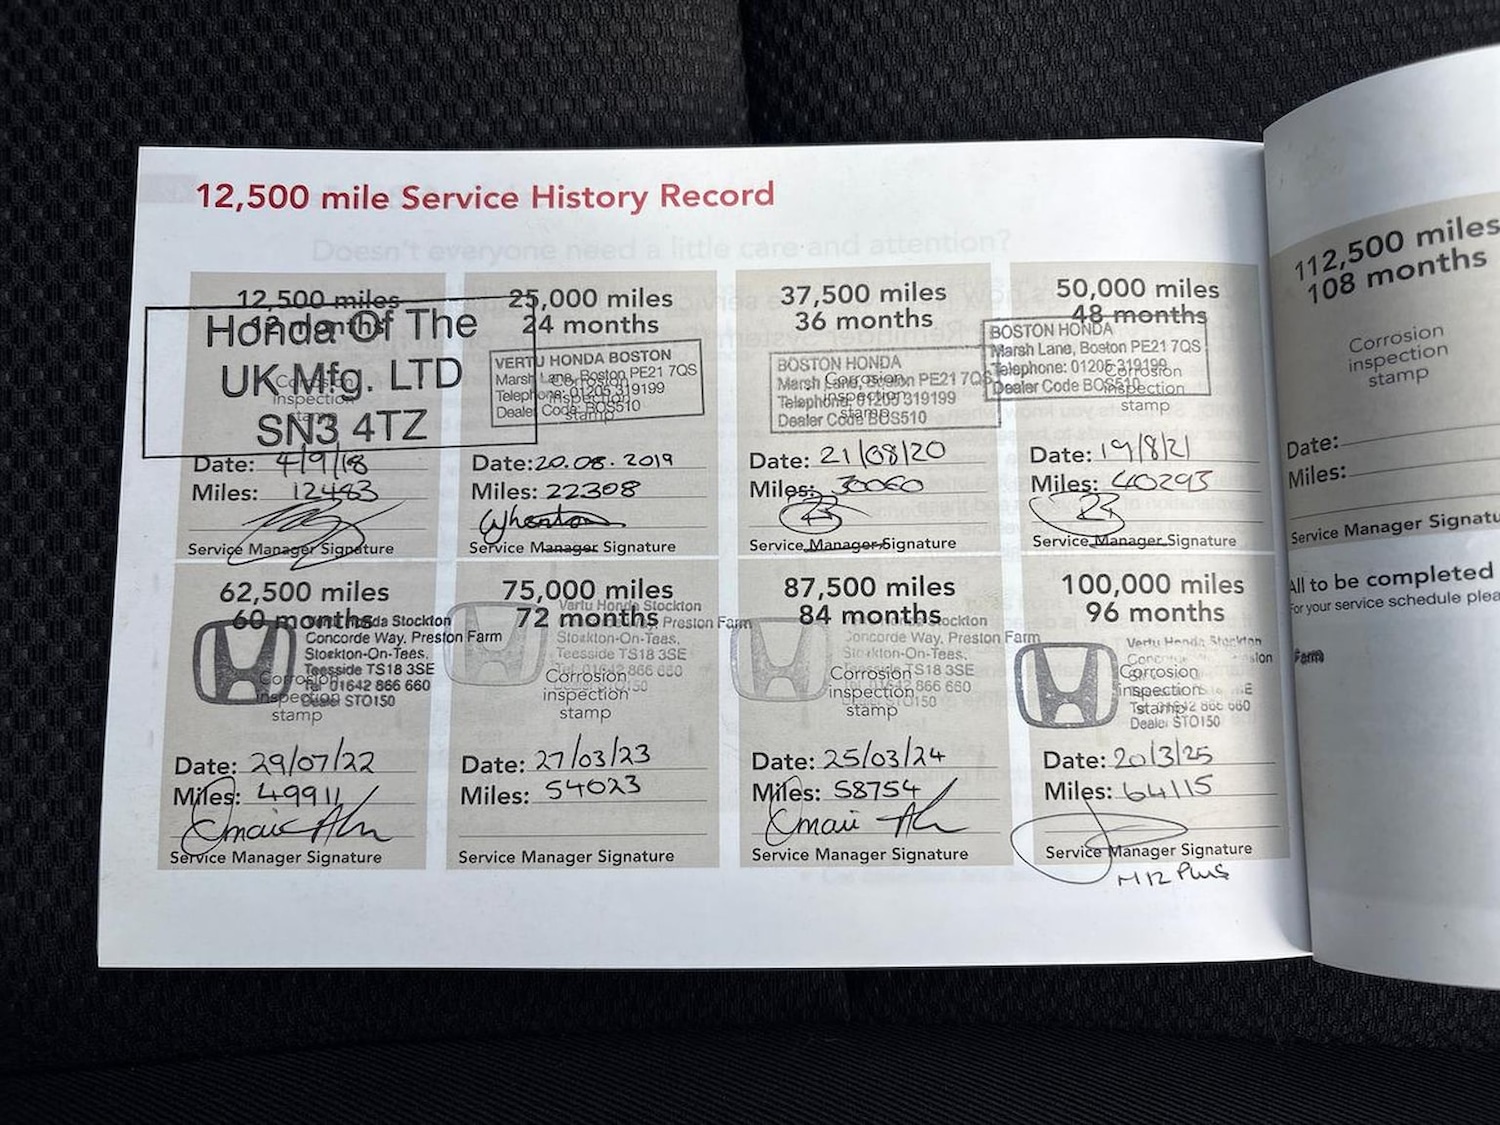 12,500 mile Service History Record
Doesn't everyone need a little care and attention?
12,500 miles
12 months
Honda Of The
UK Mfg. LTD
SN3 4TZ
Corrosion
inspection
stamp
Date: 4/9/18
Miles: 12483
Service Manager Signature
25,000 miles
24 months
VERTU HONDA BOSTON
Marsh Lane, Boston PE21 7QS
Telephone: 01205 319199
Dealer Code: BOS510
Corrosion
inspection
stamp
Date: 20.08.2019
Miles: 22308
Wharton
Service Manager Signature
37,500 miles
36 months
BOSTON HONDA
Marsh Lane, Boston PE21 7QS
Telephone: 01205 319199
Dealer Code BOS510
Corrosion
inspection
stamp
Date: 21/08/20
Miles: 30060
Service Manager Signature
50,000 miles
48 months
BOSTON HONDA
Marsh Lane, Boston PE21 7QS
Telephone: 01205 319199
Dealer Code BOS510
Corrosion
inspection
stamp
Date: 19/8/21
Miles: 40293
Service Manager Signature
62,500 miles
60 months
Vertu Honda Stockton
Concorde Way, Preston Farm
Stockton-On-Tees,
Teesside TS18 3SE
Tel 01642 866 660
Dealer STO150
Corrosion
inspection
stamp
Date: 29/07/22
Miles: 49911
Service Manager Signature
75,000 miles
72 months
Vertu Honda Stockton
Preston Farm
Stockton-On-Tees,
Teesside TS18 3SE
Tel 01642 866 660
Corrosion
inspection
stamp
Date: 27/03/23
Miles: 54023
Service Manager Signature
87,500 miles
84 months
Stockton
Concorde Way, Preston Farm
Stockton-On-Tees,
Teesside TS18 3SE
866 660
STO150
Corrosion
inspection
stamp
Date: 25/03/24
Miles: 58754
Service Manager Signature
100,000 miles
96 months
Vertu Honda Stockton
Tel 01642 866 660
Dealer STO150
Corrosion
inspection
stamp
Date: 20/3/25
Miles: 64115
Service Manager Signature
M12 Plus
112,500 miles
108 months
Corrosion
inspection
stamp
Date:
Miles:
Service Manager Signatu
All to be completed
For your service schedule plea
Farm